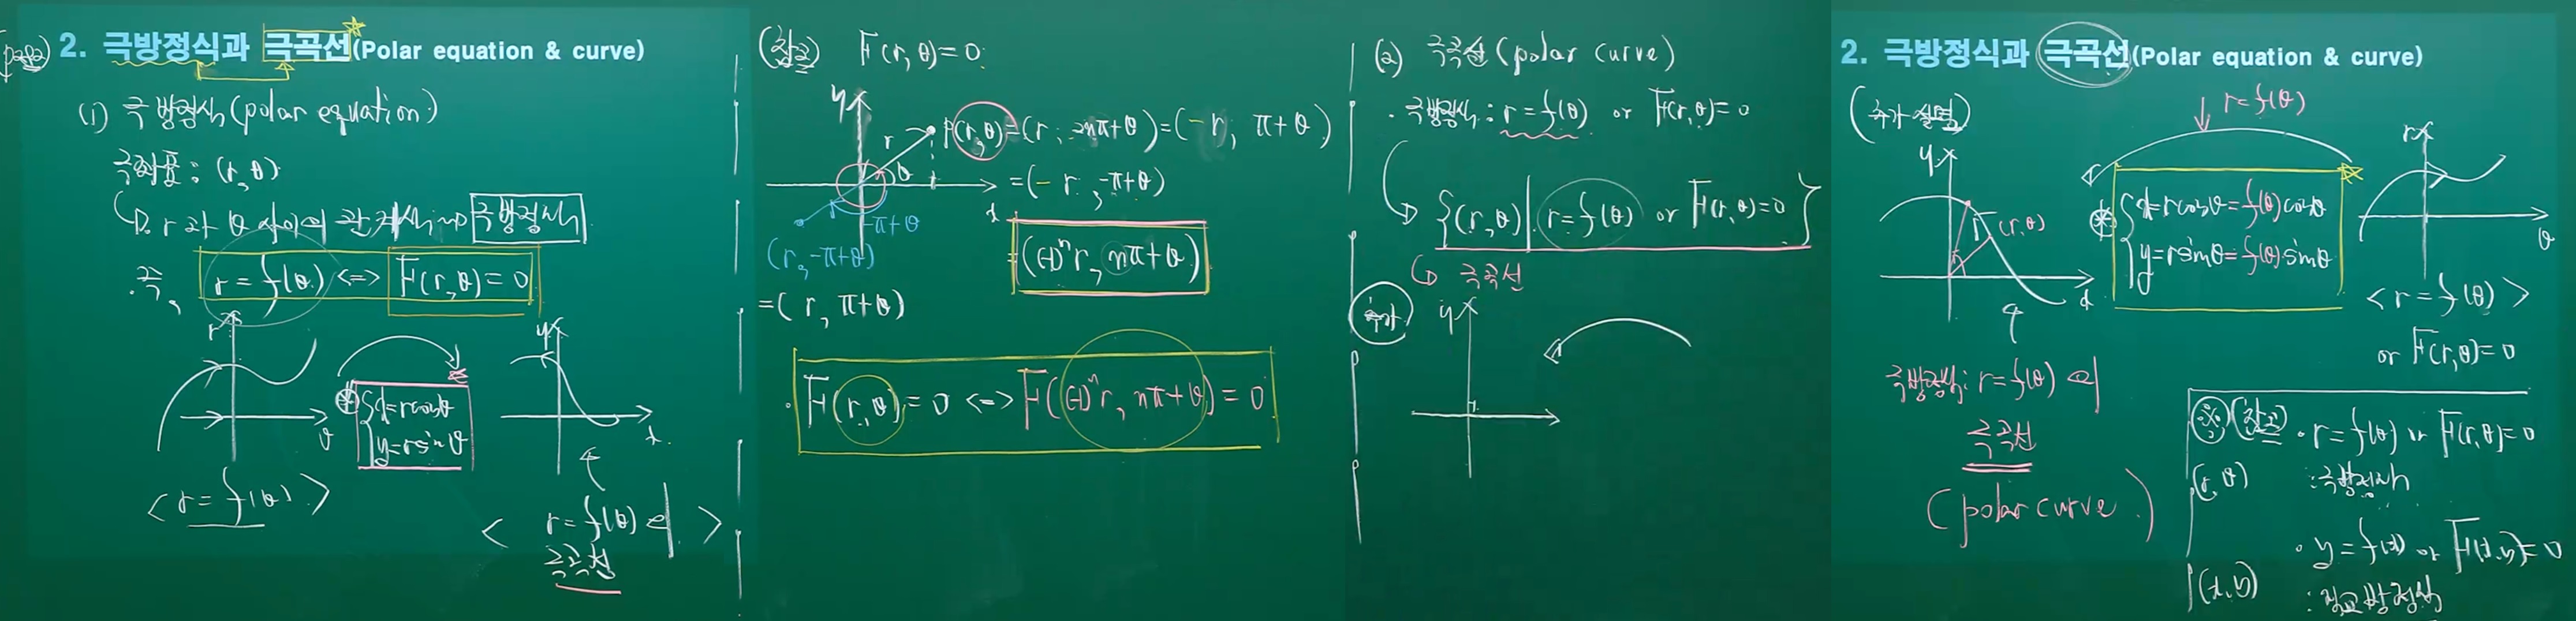 2. 극방정식과 극곡선(Polar equation & curve)
(1) 극방정식(polar equation)
극좌표 : (r, θ)
r과 θ 사이의 관계식 → 극방정식
즉, r = f(θ) <=> F(r, θ) = 0
r
θ
x = rcosθ
y = rsinθ
y
x
< r = f(θ) >
< r = f(θ)의 극곡선 >
(참고) F(r, θ) = 0
y
r
θ
x
P(r, θ) = (r, 2nπ+θ) = (-r, π+θ)
= (-r, -π+θ)
-π+θ
(r, -π+θ)
= ((-1)ⁿr, nπ+θ)
= (r, π+θ)
F(r, θ) = 0 <=> F((-1)ⁿr, nπ+θ) = 0
(2) 극곡선(polar curve)
극방정식 : r = f(θ) or F(r, θ) = 0
{(r, θ) | r = f(θ) or F(r, θ) = 0}
극곡선
추가
y
2. 극방정식과 극곡선(Polar equation & curve)
(추가설명)
r = f(θ)
y
(r, θ)
x
x = rcosθ = f(θ)cosθ
y = rsinθ = f(θ)·sinθ
r
θ
< r = f(θ) >
or F(r, θ) = 0
극방정식: r = f(θ)의
극곡선
(polar curve)
※ (참고) · r = f(θ) or F(r, θ) = 0
(r, θ) : 극방정식
· y = f(x) or F(x, y) = 0
(x, y) : 직교방정식